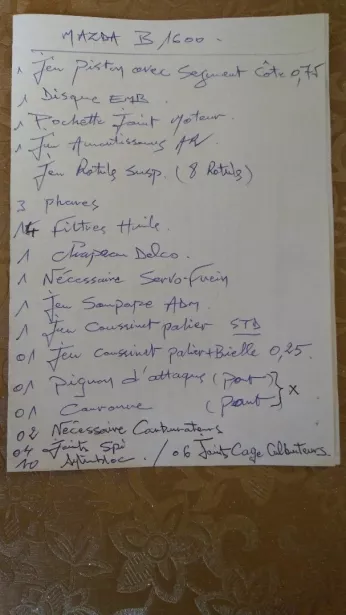 MAZDA B1600.
1 Jeu Piston avec Segment Côte 0,75
1 Disque EMB.
1 Pochette Joint Moteur.
1 Jeu Amortisseurs AR
Jeu Rotuls Susp. (8 Rotuls)
3 phares
14 Filtres Huile
1 Chapeau Delco.
1 Nécessaire Servo-Frein
1 Jeu Soupape ADM
1 Jeu Coussinet palier STD
01 Jeu coussinet palier+Bielle 0,25.
01 pignon d'attaque (pont } X
01 Couronne (pont
02 Nécessaire Carburateurs
04 Joints Spi
10 / 06 Joints Cage Culbuteurs.